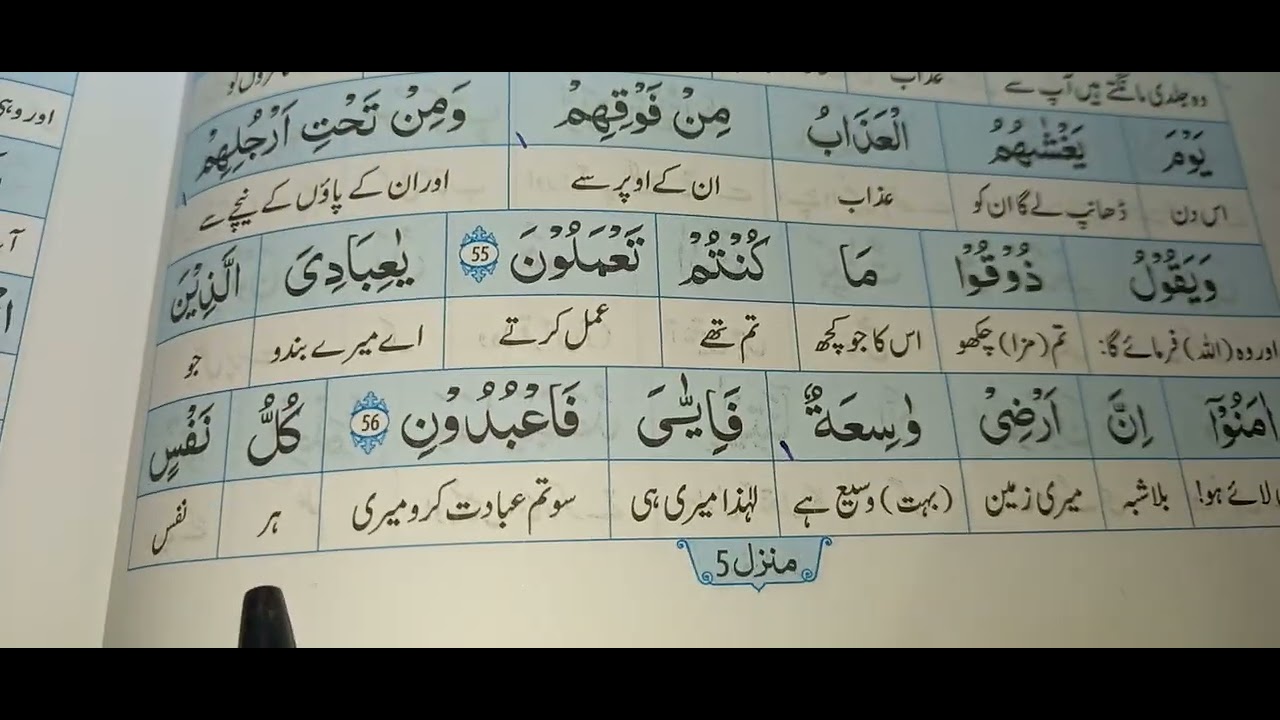 عذاب
وہ جلدی مانگتے ہیں آپ سے
یَوْمَ یَغْشٰىهُمُ الْعَذَابُ مِنْ فَوْقِهِمْ وَمِنْ تَحْتِ اَرْجُلِهِمْ
اس دن ڈھانپ لے گا ان کو عذاب ان کے اوپر سے اور ان کے پاؤں کے نیچے سے
وَیَقُوْلُ ذُوْقُوْا مَا كُنْتُمْ تَعْمَلُوْنَ 55 یٰعِبَادِیَ الَّذِیْنَ
اور وہ (اللہ) فرمائے گا: تم (مزا) چکھو اس کا جو کچھ تم تھے عمل کرتے اے میرے بندو جو
اٰمَنُوْۤا اِنَّ اَرْضِیْ وٰسِعَةٌ فَاِیَّایَ فَاعْبُدُوْنِ 56 كُلُّ نَفْسٍ
لائے ہو! بلاشبہ میری زمین (بہت) وسیع ہے لہٰذا میری ہی سو تم عبادت کرو میری ہر نفس
منزل 5